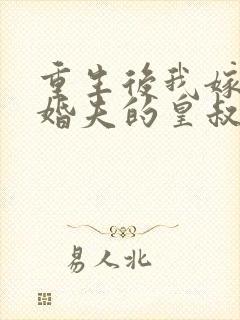 重生後我嫁
婚夫的皇叔
易人北